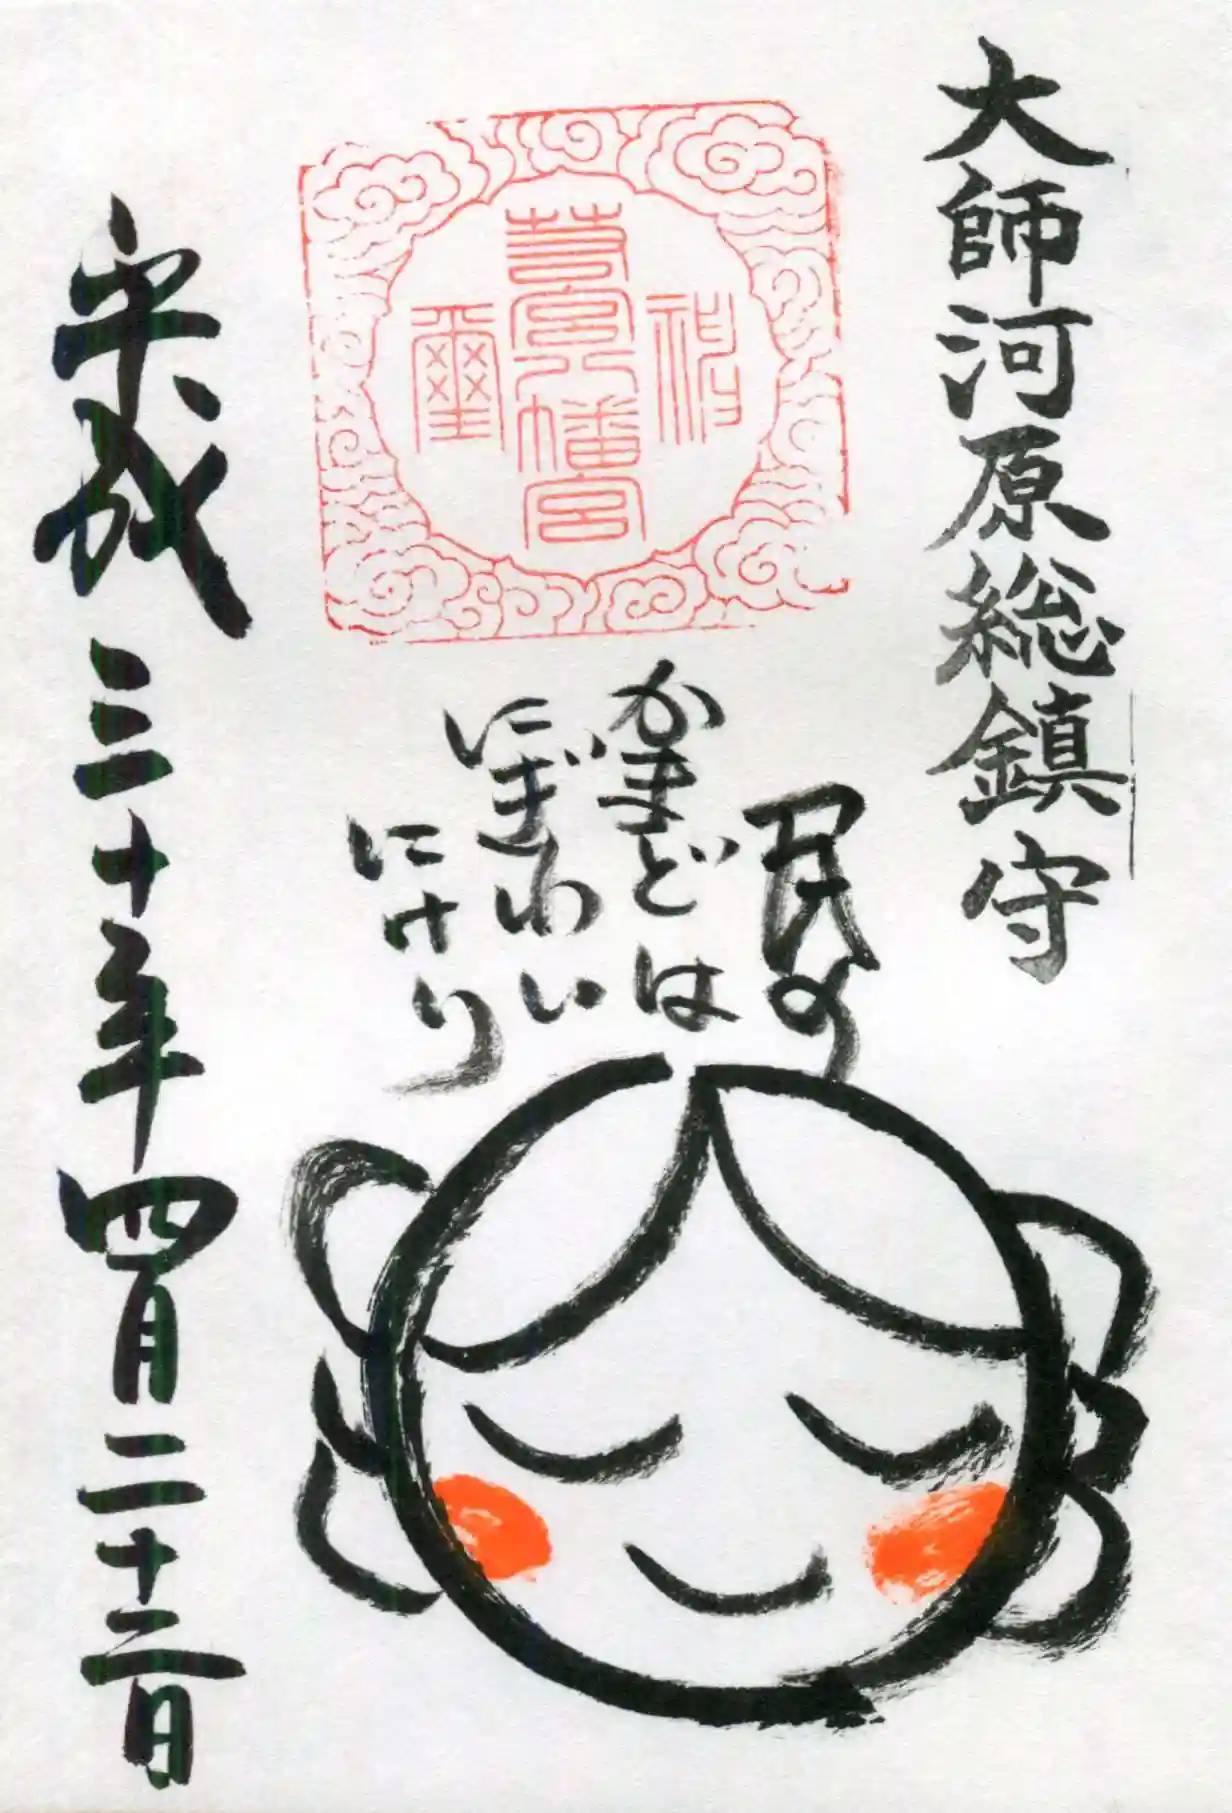 大師河原総鎮守
若宮八幡宮
璽
民の
かまどは
にぎわい
にけり
平成三十年四月二十二日